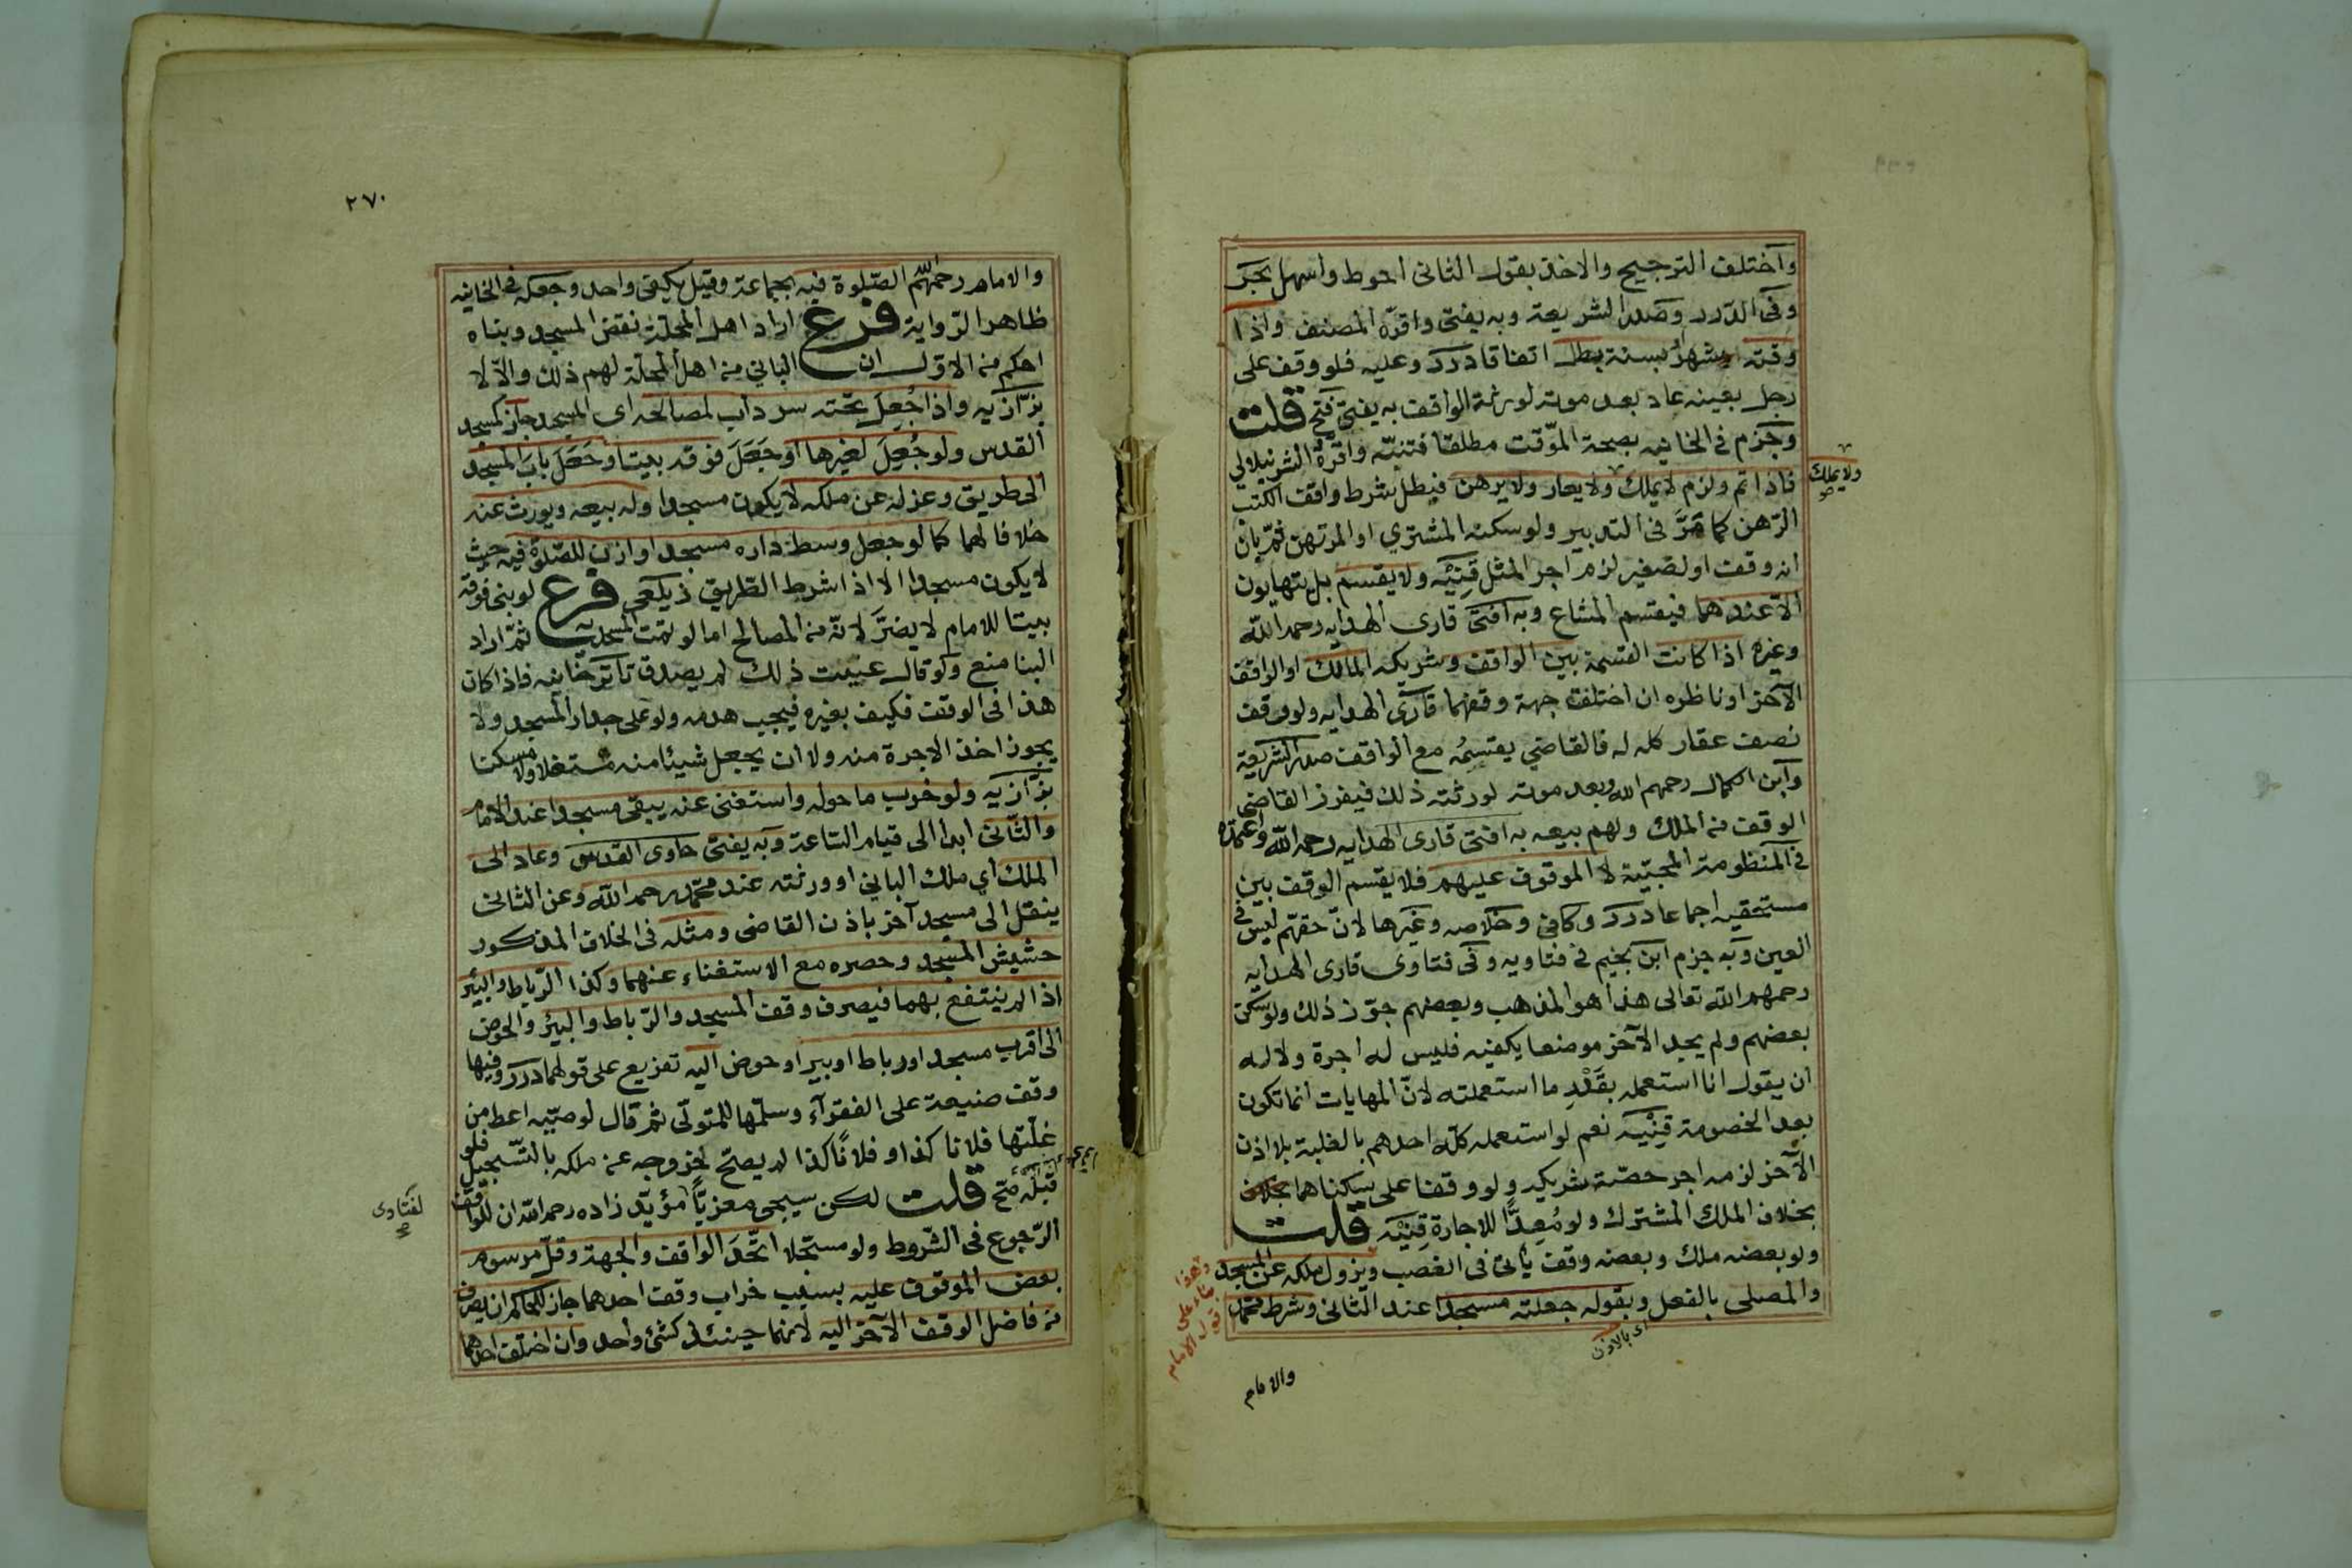 واختلف الترجيح والاخذ بقول الثانى احوط واسهل بحر
وفى الدرر وصدر الشريعة وبه يفتى واقرّه المصنف واذا
وقته بشهر او بسنة بطل اتفاقا درر وعليه فلو وقف على
رجل بعينه عاد بعد موته لورثة الواقف به يفتى فتح قلت
وجزم فى الخانيه بصحة الموّقت مطلقا فتنبّه واقرّه الشرنبلالى
فاذا تم ولزم لا يملك ولا يعار ولا يرهن فبطل شرط واقف الكتب
ولا يملك
صح
الرّهن كما مَرَّ فى التدبير ولو سكنه المشترى او المرتهن ثمّ بان
انه وقف او لصغير لزم اجر المثل قِنيَه ولا يقسم بل يتهايون
الّا عندهما فيقسم المشاع وبه افتى قارى الهدايه رحمه اللّه
وغيره اذا كانت القسمة بين الواقف وشريكه المالك او الواقف
الآخر او ناظره ان اختلفت جهة وقفهما قارى الهدايه ولو وقف
نصف عقار كله له فالقاضى يقسِمُه مع الواقف صدر الشريعة
وابن الكمال رحمهم الله وبعد موته لورثته ذلك فيفرز القاضى
الوقف من الملك ولهم بيعه به افتى قارى الهدايه رحمه اللّه واعتمده
فى المنظومة المحبّيّة لا الموقوف عليهم فلا يقسم الوقف بين
مستحقيه اجماعا درر وكافى وخلاصه وغيرها لانّ حقهم ليس فى
العين وبه جزم ابن نجيم فى فتاويه وفى فتاوى قارى الهدايه
رحمهم اللّه تعالى هذا هو المذهب وبعضهم جوّز ذلك ولو سكن
بعضهم ولم يجد الآخر موضعا يكفيه فليس له اجرة ولا له
ان يقول انا استعمله بقَدْرِ ما استعملته لانّ المهايات انما تكون
بعد الخصومة قِنْيَه نعم لو استعمله كلّه احدهم بالغلبة بلا اذن
الآخر لزمه اجر حصّة شريكه ولو وقفا على سكناهما بخلاف
بخلاف الملك المشترك ولو مُعِدًّا للاجارة قِنيَه قلت
ولو بعضه ملك وبعضه وقف يأتى فى الغصب ويزول ملكه عن المسجد
والمصلى بالفعل وبقوله جعلته مسجدا عند الثانى وشرط محمّد
اى بالاذن
وهذا
بناء على
قول الامام
والامام
٢٧٠
والامام رحمهم اللّه الصّلوة فيه بجماعة وقيل يكفى واحد وجعله فى الخانيه
ظاهر الرّواية فرع اراد اهل المحلّة نقض المسجد وبناه
احكم من الاوّل ان البانى من اهل المحلّة لهم ذلك والّا لا
بزّازيه واذا جُعِلَ تحته سرداب لمصالحه اى المسجد جاز كمسجد
القدس ولو جُعِلَ لغيرها او جَعَلَ فوقه بيتا وجَعَلَ بابَ المسجد
الى طريق وعزله عن ملكه لا يكون مسجدا وله بيعه ويورث عنه
خلافا لهما كما لو جعل وسط داره مسجدا واذن للصّلوة فيه حيث
لا يكون مسجدا الا اذا شرط الطّريق زيلعى فرع لو بنى فوقه
بيتا للامام لا يضرّ لانّه من المصالح اما لو تمّت المسجديّة ثمّ اراد
البنا منع ولو قال عنيت ذلك لم يصدق تاترخانيه فاذا كان
هذا فى الوقف فكيف بغيره فيجب هدمه ولو على جدار المسجد ولا
يجوز اخذ الاجرة منه ولا ان يجعل شيئا منه مستغلا ولا مسكنا
بزّازيه ولو خرب ما حوله واستغنى عنه يبقى مسجدا عند الامام
والثّانى ابدا الى قيام السّاعة وبه يفتى حاوى القدسى وعاد الى
الملك اى ملك البانى او ورثته عند محمّد رحمه اللّه وعن الثانى
ينقل الى مسجد آخر باذن القاضى ومثله فى الخلاف المذكور
حشيش المسجد وحصره مع الاستغناء عنهما وكذا الرّباط والبئر
اذا لم ينتفع بهما فيصرف وقف المسجد والرّباط والبئر والحوض
الى اقرب مسجد او رباط او بير او حوض اليه تفريع على قولهما درر وفيها
وقف ضيعة على الفقرآء وسلّمها للمتولّى ثم قال لوصيّه اعط من
غلّتها فلانا كذا وفلانًا كذا لم يصحّ لخروجه عن ملكه بالتّسجيل فلو
قبله صحّ قلت لكن سيجى معزيًا لفتاوى مؤيّد زاده رحمه اللّه ان للواقف
لفتاوى
صح
الرّجوع فى الشّروط ولو مسجّلا اتّحَدَ الواقف والجهة وقلّ مرسوم
بعض الموقوف عليه بسبب خراب وقف احدهما جاز للحاكم ان يصرف
من فاضل الوقف الآخر اليه لانهما حينئذ كشئ واحد وان اختلف احدهما